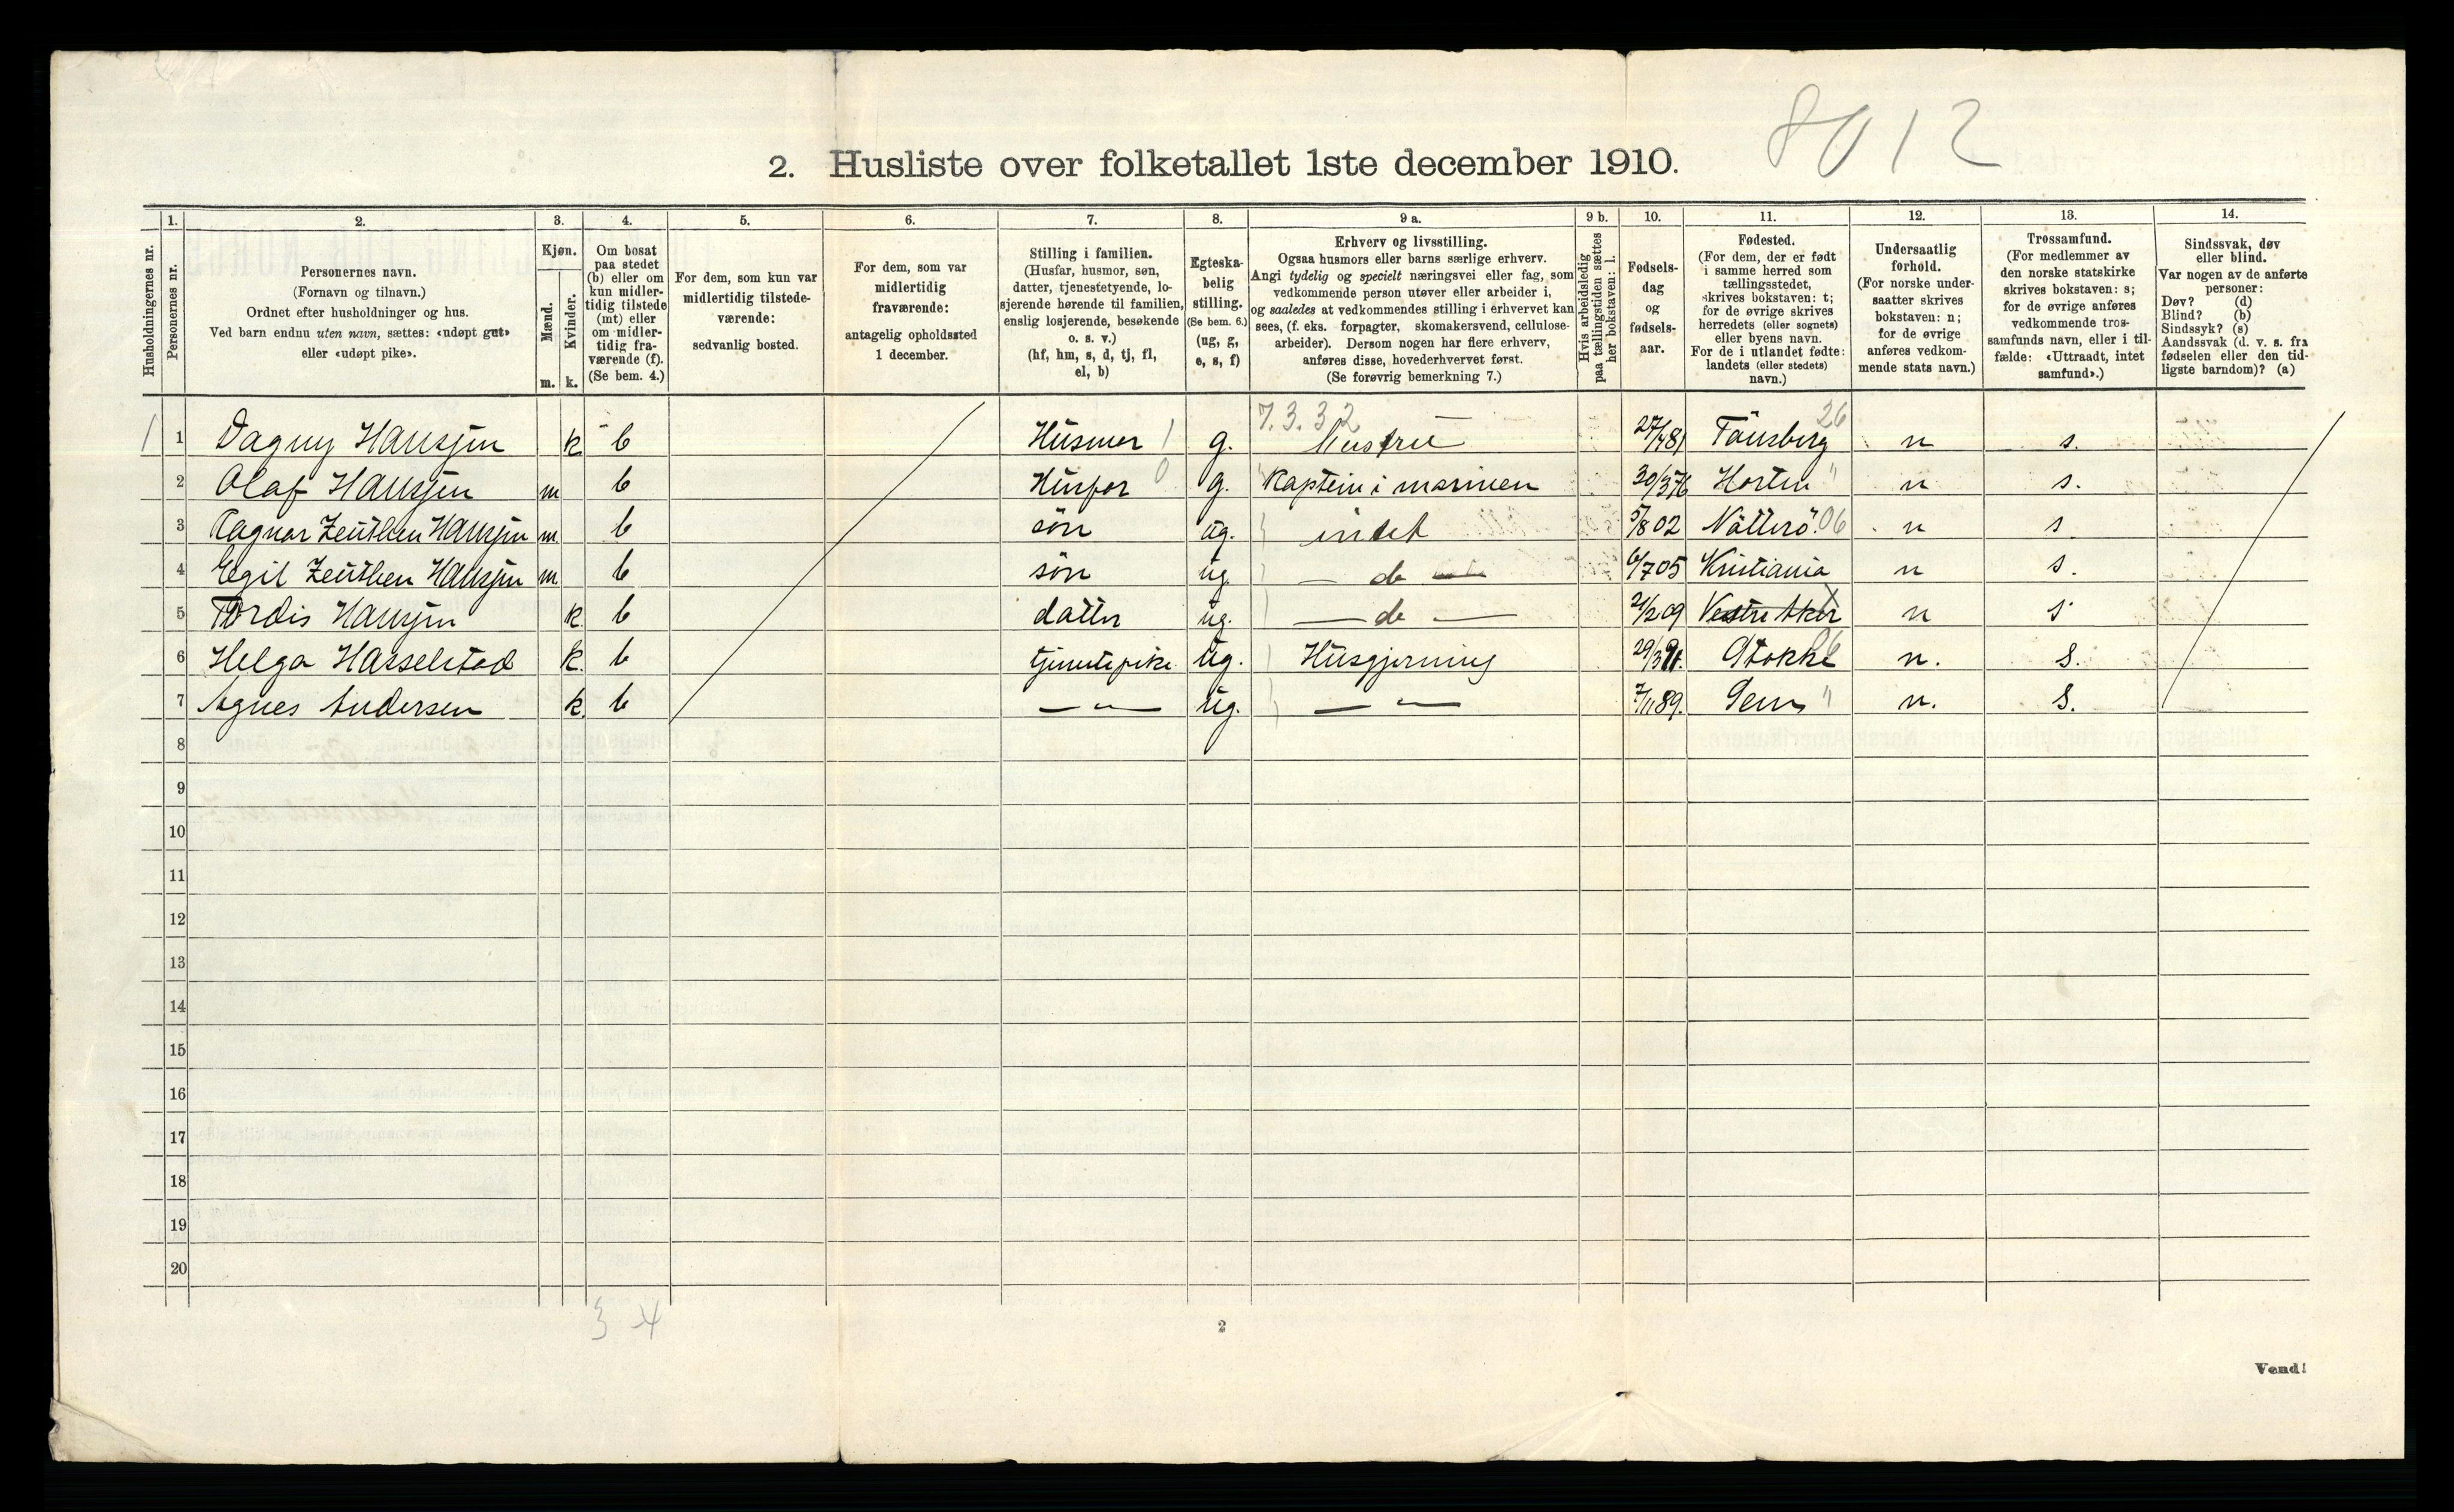 8012
2. Husliste over folketallet 1ste december 1910.
Husholdningernes nr.
1. Personernes nr.
2. Personernes navn.
(Fornavn og tilnavn.)
Ordnet efter husholdninger og hus.
Ved barn endnu uten navn, sættes: «udøpt gut»
eller «udøpt pike».
3. Kjøn.
Mænd. m.
Kvinder. k.
4. Om bosat
paa stedet
(b) eller om
kun midler-
tidig tilstede
(mt) eller
om midler-
tidig fra-
værende (f).
(Se bem. 4.)
5. For dem, som kun var
midlertidig tilstede-
værende:
sedvanlig bosted.
6. For dem, som var
midlertidig
fraværende:
antagelig opholdssted
1 december.
7. Stilling i familien.
(Husfar, husmor, søn,
datter, tjenestetyende, lo-
sjerende hørende til familien,
enslig losjerende, besøkende
o. s. v.)
(hf, hm, s, d, tj, fl,
el, b)
8. Egteska-
belig
stilling.
(Se bem. 6.)
(ug, g,
e, s, f)
9 a. Erhverv og livsstilling.
Ogsaa husmors eller barns særlige erhverv.
Angi tydelig og specielt næringsvei eller fag, som
vedkommende person utøver eller arbeider i,
og saaledes at vedkommendes stilling i erhvervet kan
sees, (f. eks. forpagter, skomakersvend, cellulose-
arbeider). Dersom nogen har flere erhverv,
anføres disse, hovederhvervet først.
(Se forøvrig bemerkning 7.)
9 b. Hvis arbeidsledig
paa tællingstiden sættes
her bokstaven: l.
10. Fødsels-
dag
og
fødsels-
aar.
11. Fødested.
(For dem, der er født
i samme herred som
tællingsstedet,
skrives bokstaven: t;
for de øvrige skrives
herredets (eller sognets)
eller byens navn.
For de i utlandet fødte:
landets (eller stedets)
navn.)
12. Undersaatlig
forhold.
(For norske under-
saatter skrives
bokstaven: n;
for de øvrige
anføres vedkom-
mende stats navn.)
13. Trossamfund.
(For medlemmer av
den norske statskirke
skrives bokstaven: s;
for de øvrige anføres
vedkommende tros-
samfunds navn, eller i til-
fælde: «Uttraadt, intet
samfund».)
14. Sindssvak, døv
eller blind.
Var nogen av de anførte
personer:
Døv? (d)
Blind? (b)
Sindssyk? (s)
Aandssvak (d. v. s. fra
fødselen eller den tid-
ligste barndom)? (a)
7.3.32 26
1 1 Dagny Hansen k b Husmor 1 g. Hustru 27/4 81 Tönsberg n s.
2 Olaf Hansen m b Husfar 0 g. Kaptein i marinen 30/3 76 Horten " n s.
3 Ragnar Zeuthen Hansen m. b sön ug. intet 5/8 02 Nötterö. 06 n s.
4 Egil Zeuthen Hansen m b sön ug. — do — 6/7 05 Kristiania n s.
5 Tordis Hansen k b datter ug. — do — 21/2 09 Vestre Aker n s
6 Helga Hasselstad k. b tjenestepike ug. Husgjerning 29/3 91. Stokke 06 n. s.
7 Agnes Andersen k. b — " — ug. — " — 7/11 89. Sem " n. s.
8
9
10
11
12
13
14
15
16
17
18
19
20
3 4
2
Vend!